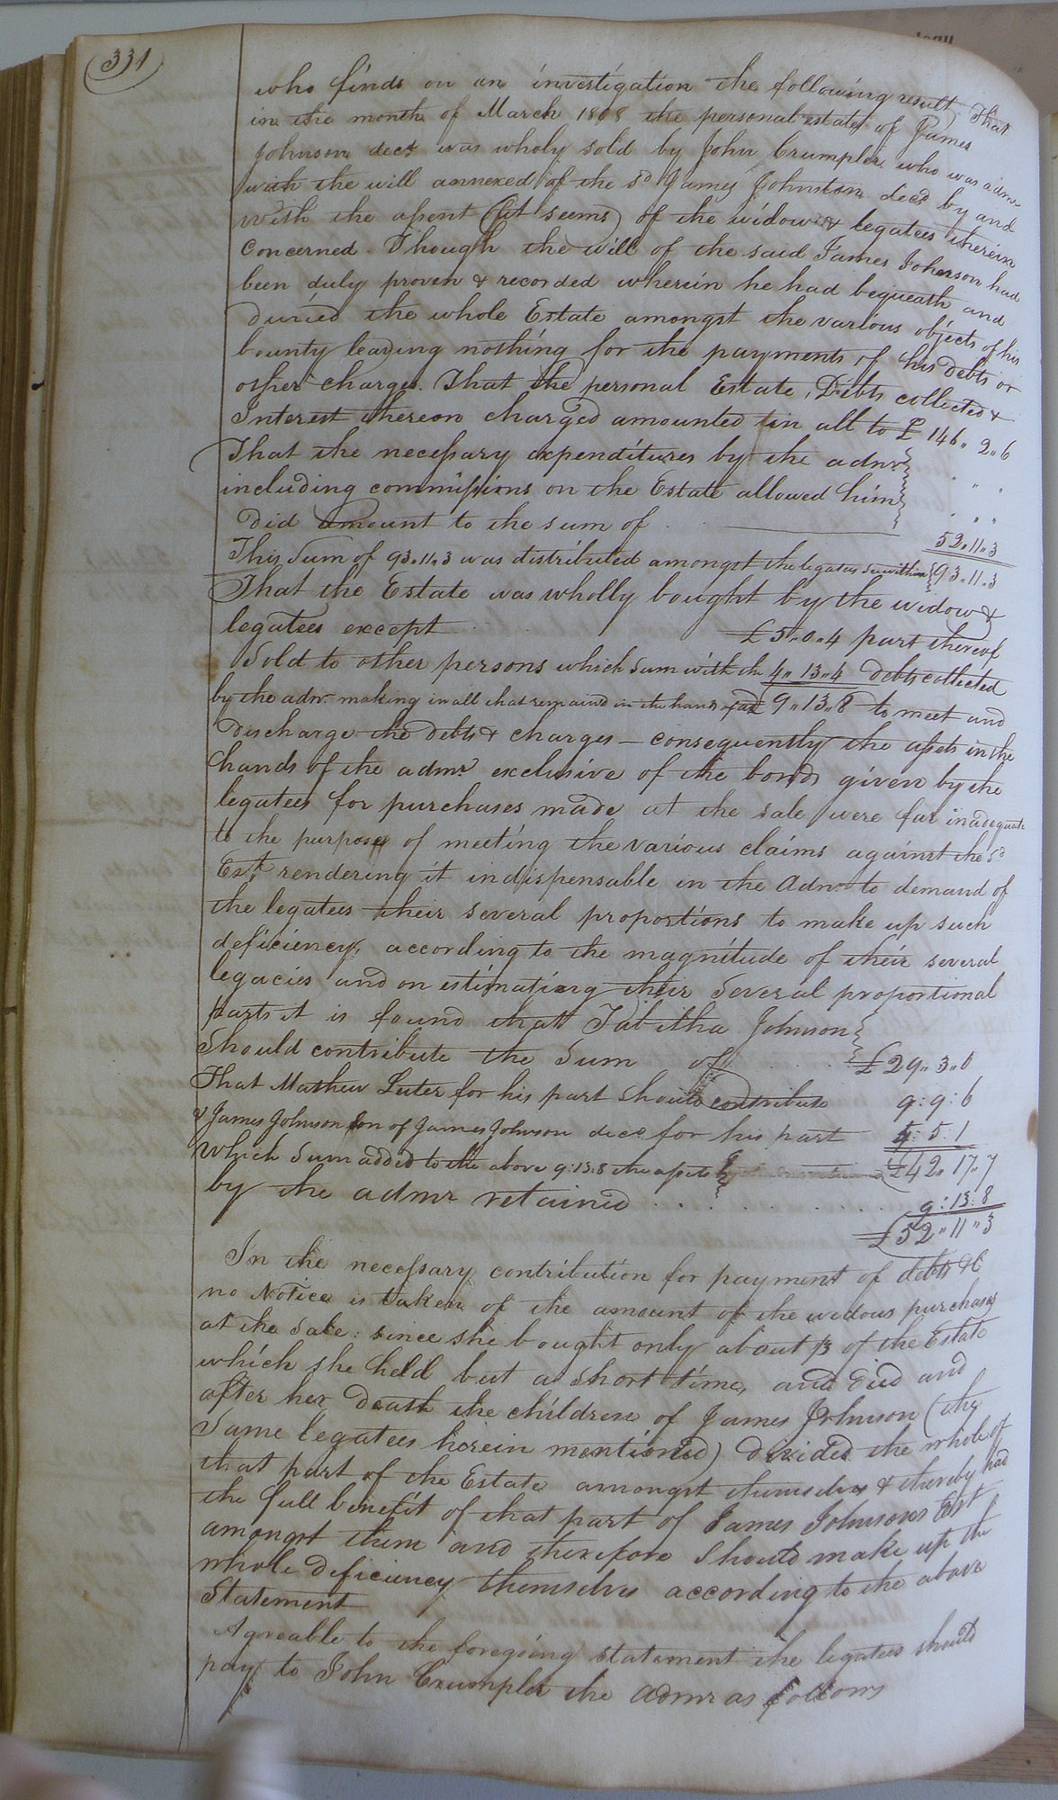 331
who finds on an investigation the following result, That
in the month of March 1808 the personal estate of James
Johnson decd was wholy sold by John Crumpler who was admr
with the will annexed of the sd James Johnston decd by and
with the assent (it seems) of the widow & legatees therein
concerned. Though the will of the said James Johnson had
been duly proven & recorded wherein he had bequeath and
the whole Estate amongst the various objects of his
bounty leaving nothing for the payments of his debts or
other charges. That the personal Estate, Debts collected &
Interest thereon charged amounted in all to £ 146 " 2 " 6
That the necessary expenditures by the admr
including commissions on the Estate allowed him
did amount to the sum of 52 " 11 " 3
This Sum of 93.11.3 was distributed amongst the legatees 93 " 11 " 3
That the Estate was wholly bought by the widow &
legatees except £ 5 " 0 " 4 part thereof
Sold to other persons which Sum with the 4 " 13 " 4 debts collected
by the admr making in all that remained in the hands 9 " 13 " 8 to meet and
discharge the debts & charges — consequently the assets in the
hands of the admr exclusive of the bonds given by the
legatees for purchases made at the sale were far inadequate
to the purposes of meeting the various claims against the sd
Est. rendering it indispensable in the Admr to demand of
the legatees their several proportions to make up such
deficiency, according to the magnitude of their several
legacies and on estimating their several proportional
parts it is found that Tabitha Johnson
Should contribute the Sum of £ 29 " 3 " 0
That Mathew Luter for his part should contribute 9 : 9 : 6
& James Johnson son of James Johnson decd for his part 4 : 5 : 1
Which Sum added to the above 9 : 13 : 8 the assets £ 42 " 17 " 7
by the admr retained . . . . . . 9 : 13 : 8
£ 52 " 11 " 3
In the necessary contribution for payment of debts &C
no Notice is taken of the amount of the widows purchases
at the Sale : since she bought only about ⅓ of the Estate
which she held but a short time, and died and
after her death the children of James Johnson (the
Same legatees herein mentioned) divided the whole of
that part of the Estate amongst themselves & thereby had
the full benefit of that part of James Johnsons Est
amongst them and therefore should make up the
whole deficiency themselves according to the above
Statement
Agreable to the foregoing statement the legatees should
pay to John Crumpler the Admr as follows